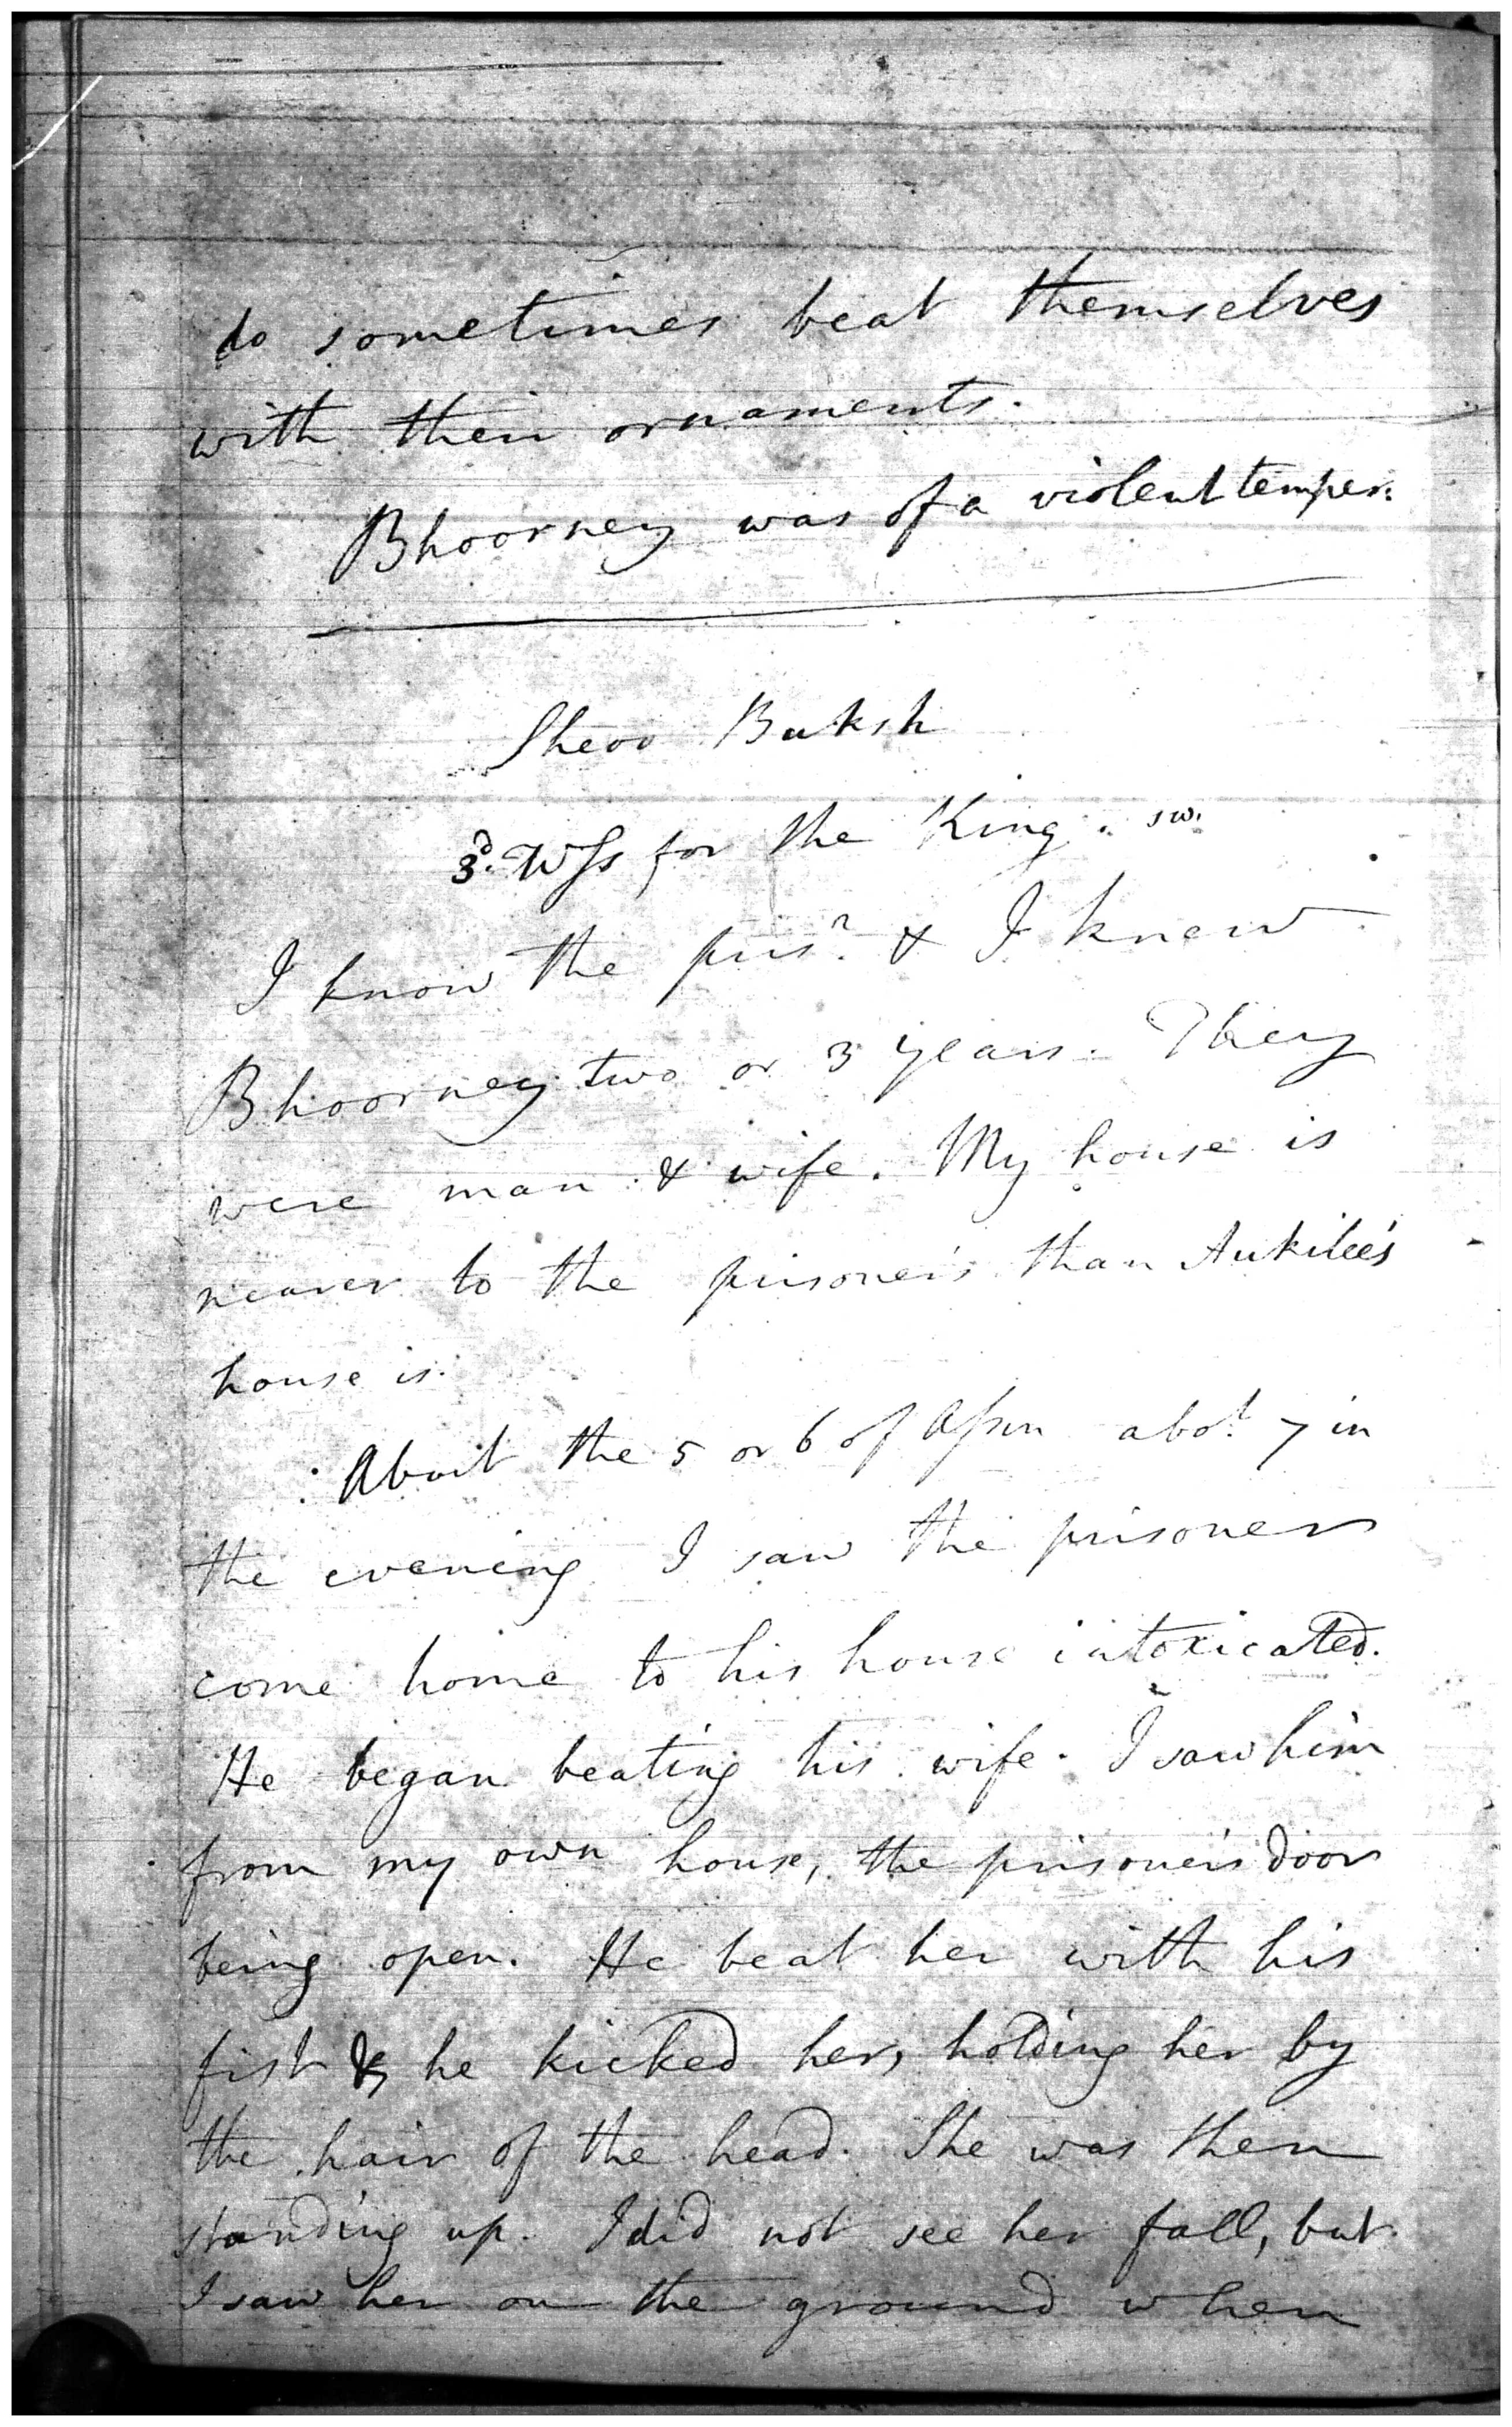 do sometimes beat themselves
with their ornaments.
Bhoorney was of a violent temper.
Sheoo Buksh
3d. Wss for the King. sw.
I know the prisr. & I knew
Bhoorney two or 3 years. They
were man & wife. My house is
nearer to the prisoner's than Aukilee's
house is.
About the 5 or 6 of Assin abot. 7 in
the evening I saw the prisoner
come home to his house intoxicated.
He began beating his wife. I saw him
from my own house, the prisoner's door
being open. He beat her with his
fist & he kicked her, holding her by
the hair of the head. She was then
standing up. I did not see her fall, but
I saw her on the ground when